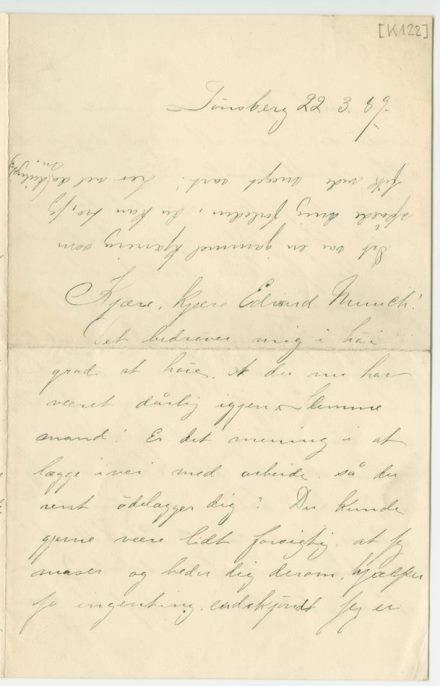 [K122]
Tönsberg 22. 3. 89.
Det var en gammel kjæring som
spaade mig forleden, du kan tro, jeg
fik vide meget rart!
Kjære, kjære Edvard Munch!
Det bedrøver mig i høi
grad at høre. At du nu har
været dårlig iggen
mand! Er det mening i at
lægge ivei med arbeide så du
rent ödelægger dig? Du kunde
gjerne være lidt forsigtig. at jeg
maser og beder dig derom, hjælper
jo ingenting. endskjöndt jeg er